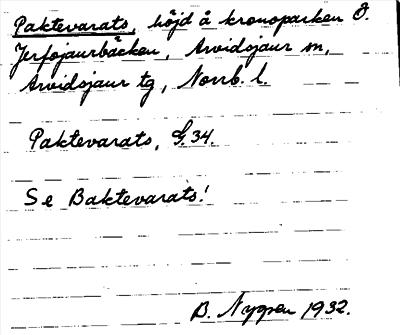 Paktevarats, höjd å kronoparken Ö.
Jerfojaurbäcken, Arvidsjaur sn,
Arvidsjaur tg, Norrb. l.
Paktevarats, G. 34.
Se Baktevarats!
B. Nygren 1932.